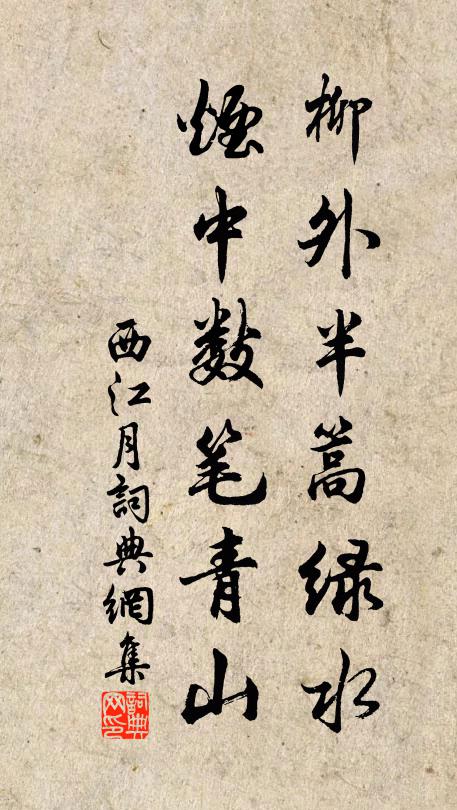 柳外半篙绿水
煙中数笔青山
西江月詞典網集
詞典网印